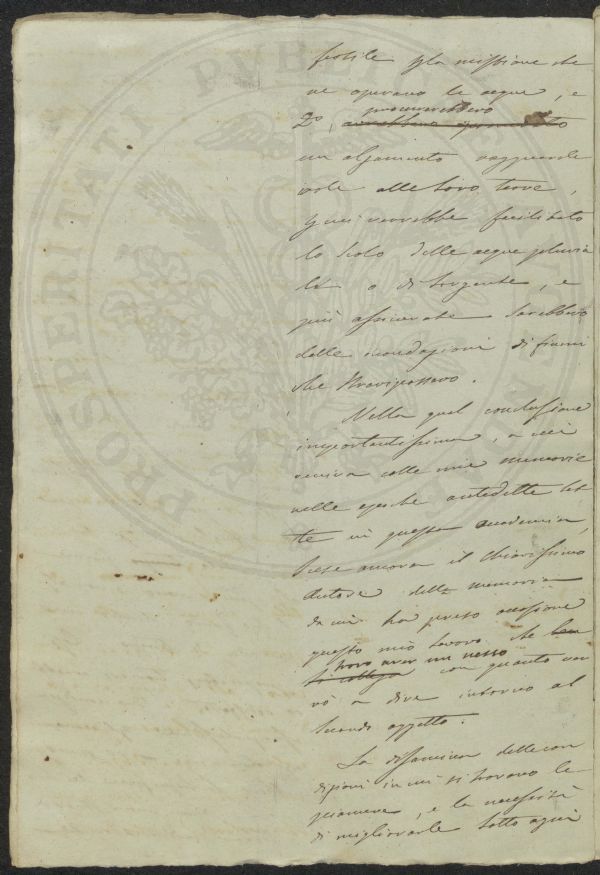 fertile p la missione che
ne operano le acque, e
procurerebbero
2°, avrebbero
un alzamento ragguarde
vole alle loro terre,
quei verrebbe facilitato
lo scolo delle acque pluvia
li o di sorgente, e
più assicurate sarebbero
dalle inondazioni di fiumi
che straripassero.
Nella qual conclusione
importantissima, a cui
veniva colle mie memorie
nelle epoche antedette let
te in questa accademia,
scese ancora il chiarissimo
Autore della memoria
da cui ha preso occasione
questo mio lavoro, che ben
trovo aver un nesso
si collega con quanto ver
rò a dire intorno al
secondo oggetto.
La disamina delle con
dizioni in cui si trovano le
pianure, e la necessità
di migliorarle sotto ogni
PROSPERITATI PUBLICAE